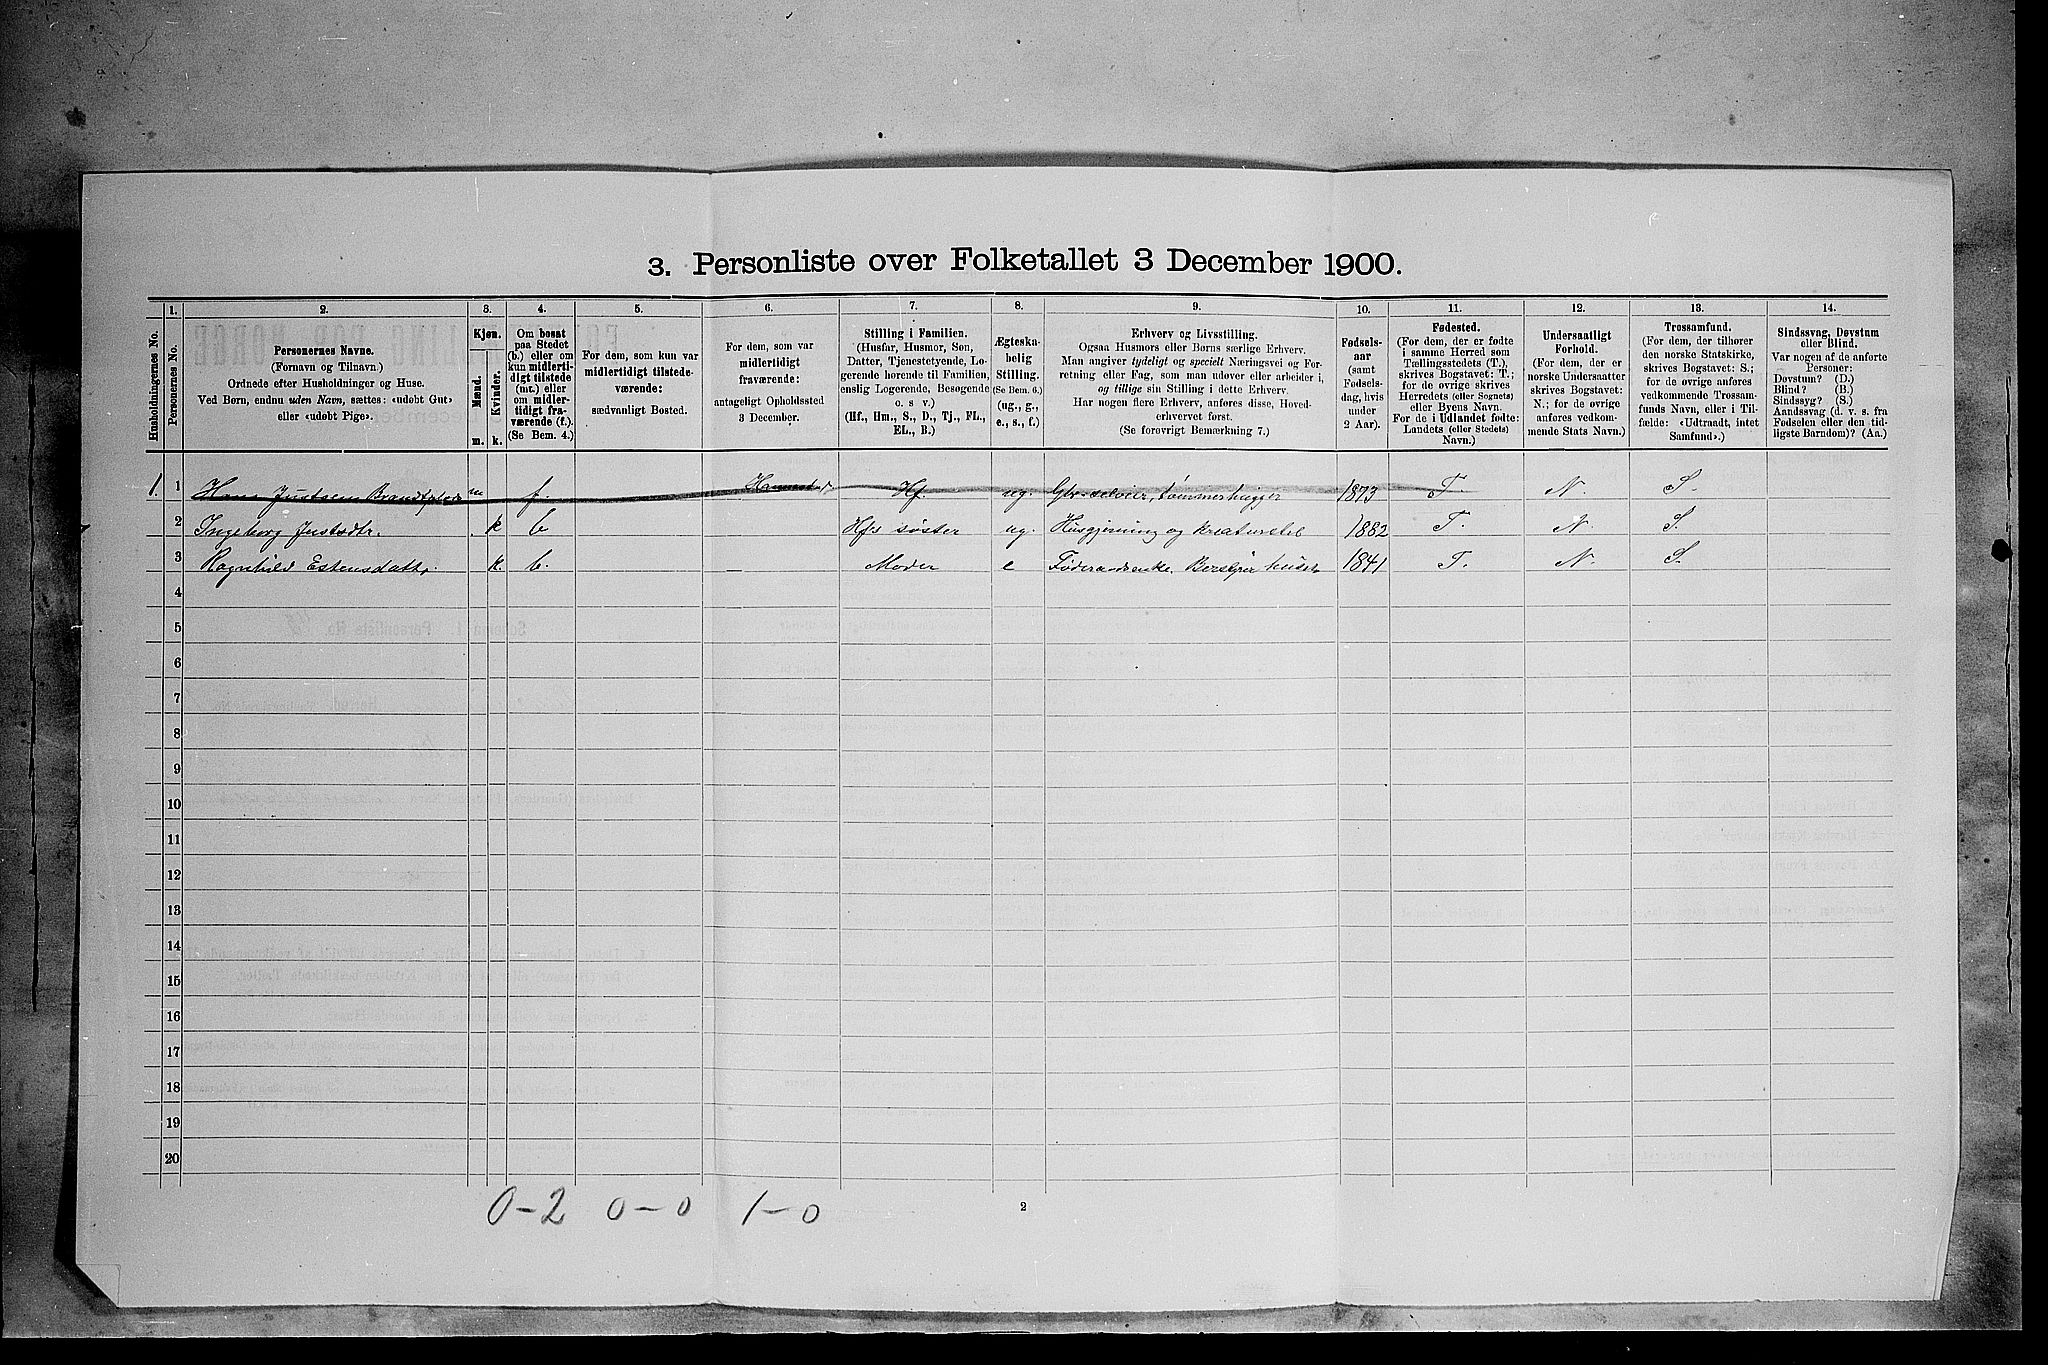 3. Personliste over Folketallet 3 December 1900.
Husholdningernes No.
1.
Personernes No.
2.
Personernes Navne.
(Fornavn og Tilnavn.)
Ordnede efter Husholdninger og Huse.
Ved Børn, endnu uden Navn, sættes: «udøbt Gut»
eller «udøbt Pige».
3.
Kjøn.
Mænd.
Kvinder.
m.
k.
4.
Om bosat
paa Stedet
(b.) eller om
kun midlerti-
digt tilstede
(mt.) eller
om midler-
tidigt fra-
værende (f.).
(Se Bem. 4.)
5.
For dem, som kun var
midlertidigt tilstede-
værende:
sædvanligt Bosted.
6.
For dem, som var
midlertidigt
fraværende:
antageligt Opholdssted
3 December.
7.
Stilling i Familien.
(Husfar, Husmor, Søn,
Datter, Tjenestetyende, Lo-
gerende hørende til Familien,
enslig Logerende, Besøgende
o. s v.)
(Hf., Hm., S., D., Tj., FL.,
EL., B.)
8.
Ægteska-
belig
Stilling.
(Se Bem. 6.)
(ug., g.,
e., s., f.)
9.
Erhverv og Livsstilling.
Ogsaa Husmors eller Børns særlige Erhverv.
Man angiver tydeligt og specielt Næringsvei og For-
retning eller Fag, som man udøver eller arbeider i,
og tillige sin Stilling i dette Erhverv.
Har nogen flere Erhverv, anføres disse, Hoved-
erhvervet først.
(Se forøvrigt Bemærkning 7.)
10.
Fødsels-
aar
(samt
Fødsels-
dag, hvis
under
2 Aar).
11.
Fødested.
(For dem, der er fødte
i samme Herred som
Tællingsstedets (T.),
skrives Bogstavet: T.;
for de øvrige skrives
Herredets (eller Sognets)
eller Byens Navn.
For de i Udlandet fødte:
Landets (eller Stedets)
Navn.)
12.
Undersaatligt
Forhold.
(For dem, der er
norske Undersaatter
skrives Bogstavet:
N.; for de øvrige
anføres vedkom-
mende Stats Navn.)
13.
Trossamfund.
(For dem, der tilhører
den norske Statskirke,
skrives Bogstavet: S.;
for de øvrige anføres
vedkommende Trossam-
funds Navn, eller i Til-
fælde: «Udtraadt, intet
Samfund».)
14.
Sindssvag, Døvstum
eller Blind.
Var nogen af de anførte
Personer:
Døvstum? (D.)
Blind? (B.)
Sindssyg? (S.)
Aandssvag (d. v. s. fra
Fødselen eller den tid-
ligste Barndom)? (Aa.)
1. 1 Hans Justsen m f. Hf. ug. Gbr. selveier, tømmerhugger 1873 T. N. S.
2 Ingeborg Justsdtr. k b Hf's søster ug. Husgjerning og kreaturstel 1882 T. N. S.
3 Ragnhild Estensdatt. k. b. — Moder e Føderaadsenke. 1841 T. N. S.
4
5
6
7
8
9
10
11
12
13
14
15
16
17
18
19
20
0-2 0-0 1-0
2